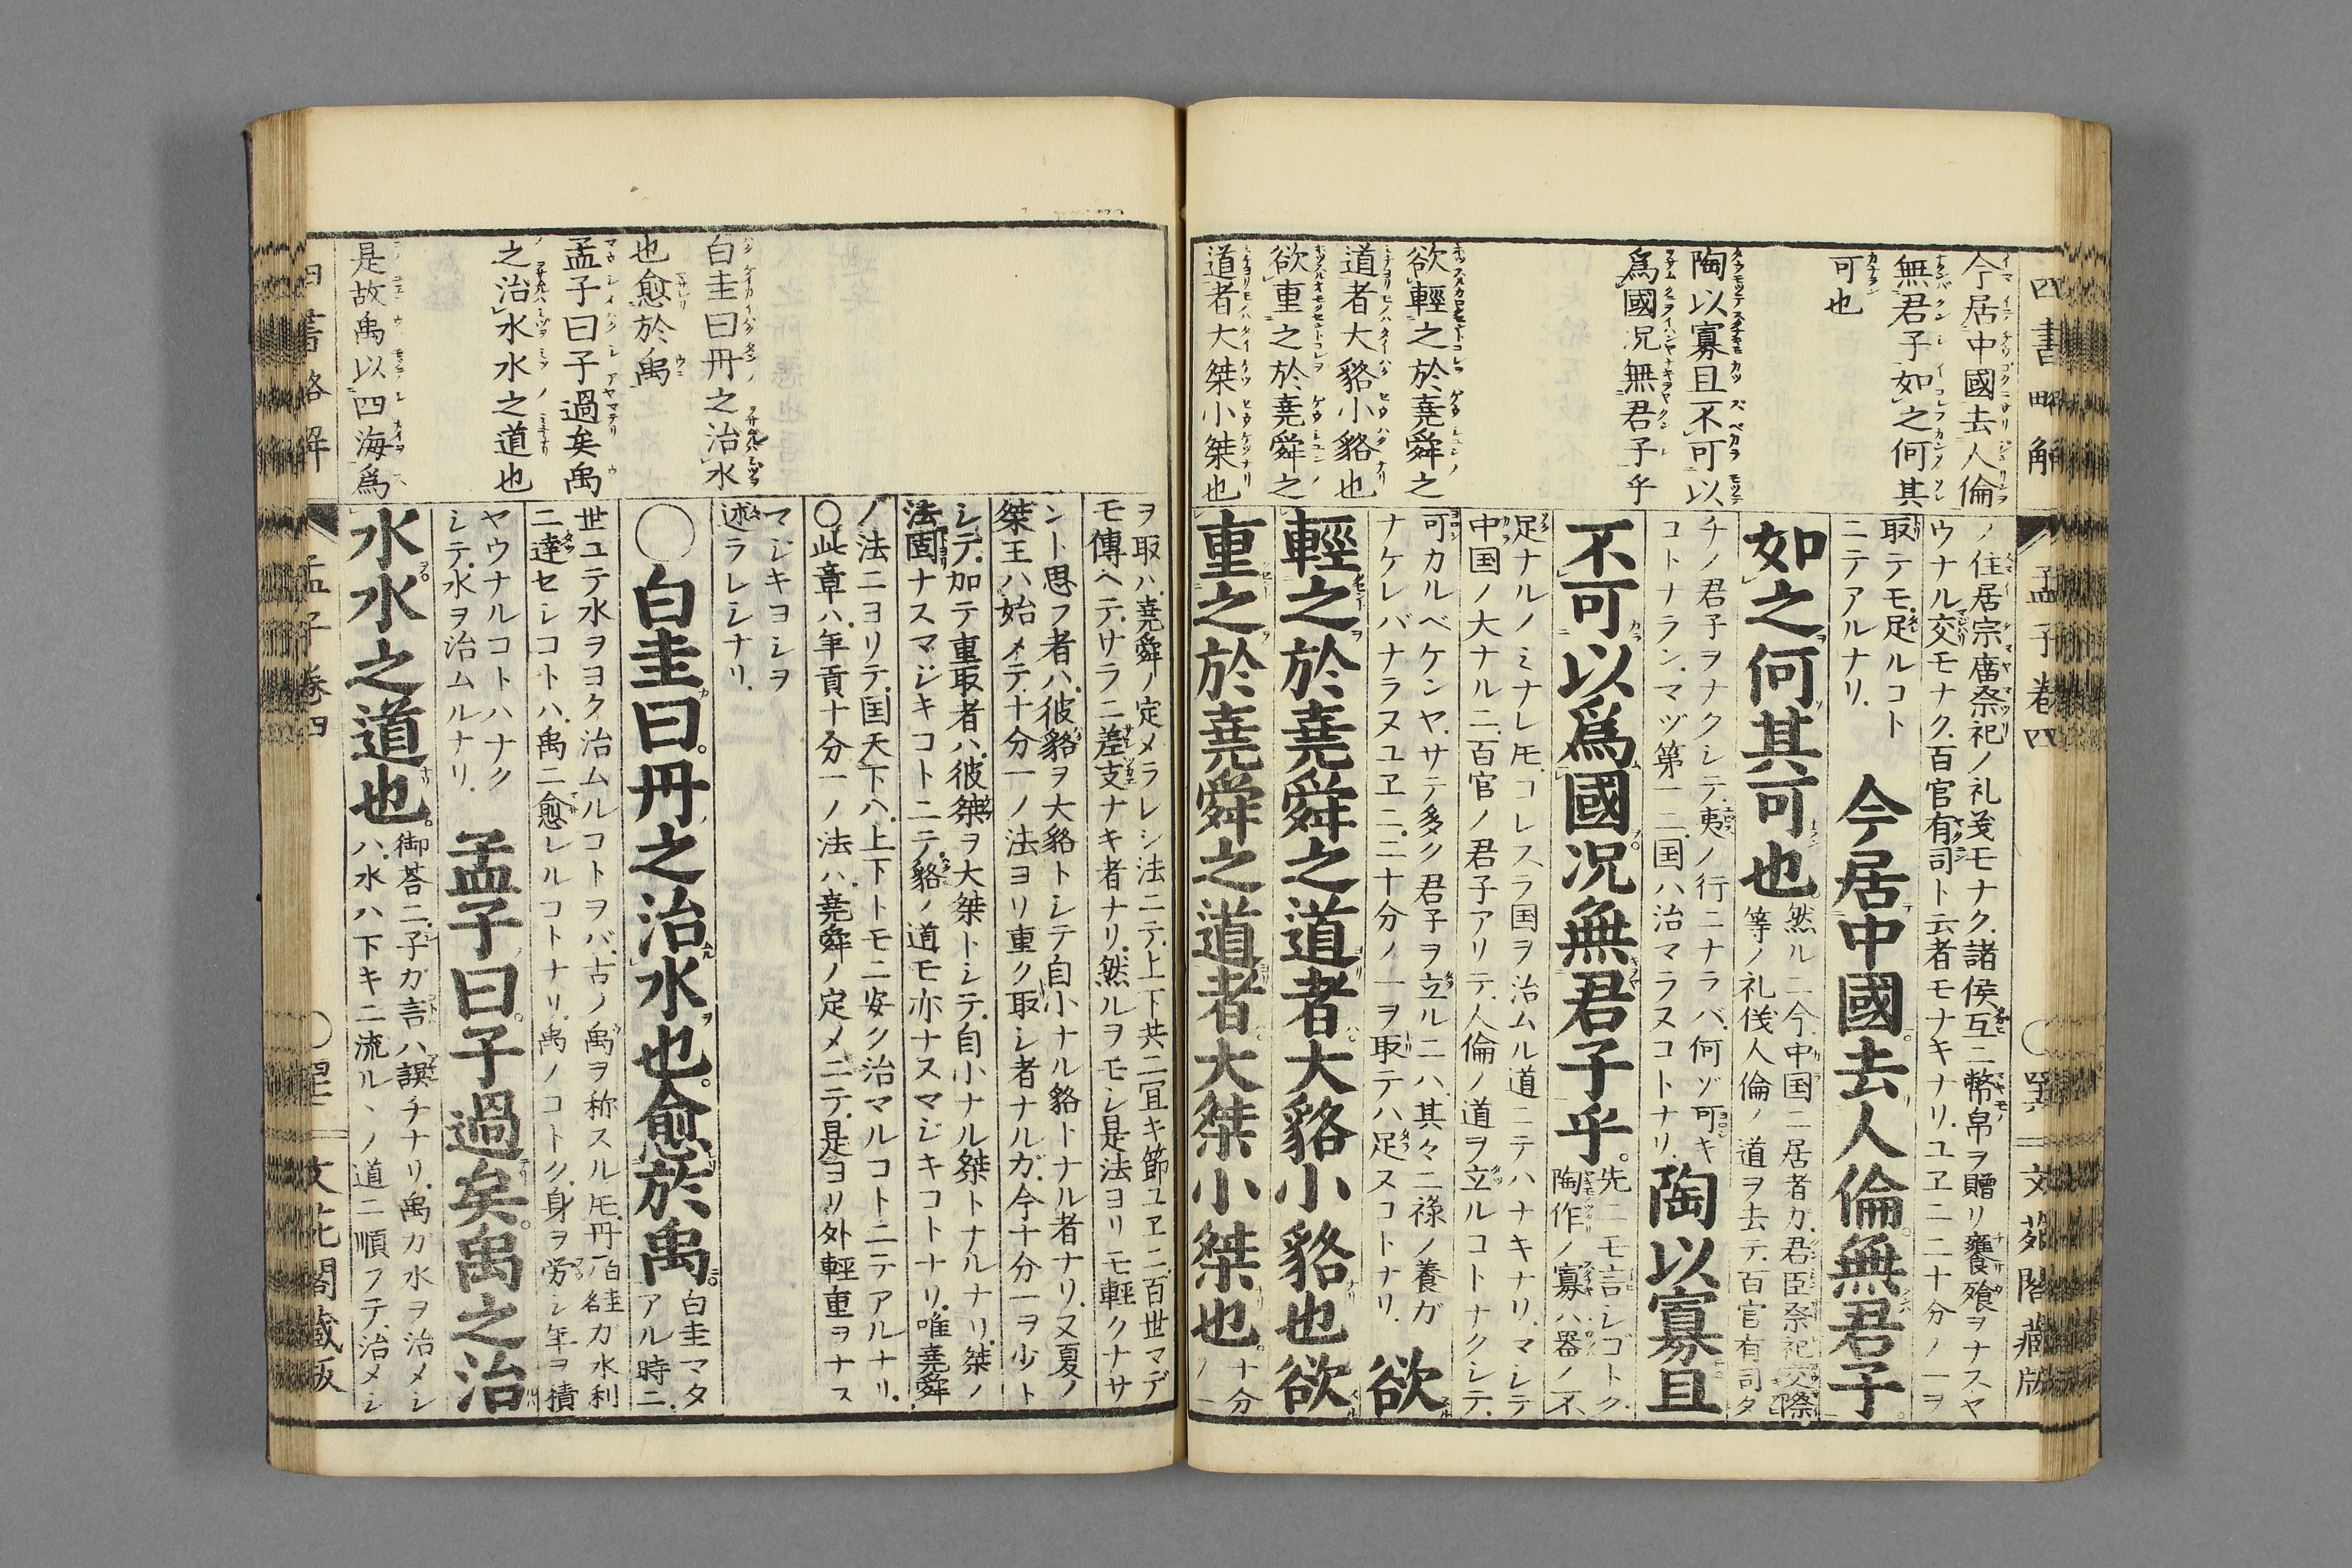 四書略解
孟子卷四
文苑閣藏版
今居中國去人倫
無君子如之何其
可也
陶以寡且不可以
爲國况無君子乎
欲輕之於堯舜之
道者大貉小貉也
欲重之於堯舜之
道者大桀小桀也
ノ住居宗廟祭祀ノ礼茂モナク諸侯互ニ幣帛ヲ贈リ饔飱ヲナスヤ
ウナル交モナク百官有司ト云者モナキナリユヱニ二十分ノ一ヲ
取テモ足ルコト
ニテアルナリ
今居中國去人倫無君子
如之何其可也
然ルニ今中国ニ居者カ君臣祭祀交際
等ノ礼伐人倫ノ道ヲ去テ百官有司タ
チノ君子ヲナクシテ夷ノ行ニナラバ何ゾ可キ
コトナランマヅ第一ニ国ハ治マラヌコトナリ
陶以寡且
不可以爲國况無君子乎
先ニモ言シゴトク
陶作ノ寡ハ器ノ不
足ナルノミナレ𪜈コレスラ国ヲ治ムル道ニテハナキナリマシテ
中国ノ大ナルニ百官ノ君子アリテ人倫ノ道ヲ立ルコトナクシテ
可カルベケンヤサテ多ク君子ヲ立ルニハ其々ニ禄ノ養ガ
ナケレバナラヌユヱニ二十分ノ一ヲ取テハ足ヌコトナリ
欲
輕之於堯舜之道者大貉小貉也欲
重之於堯舜之道者大桀小桀也
十分
ノ一
ヲ取ハ堯舜ノ定メラレシ法ニテ上下共ニ宜キ節ユヱニ百世マデ
モ傳ヘテサラニ差支ナキ者ナリ然ルヲモシ是法ヨリモ輕クナサ
ント思フ者ハ彼貉ヲ大貉トシテ自小ナル貉トナル者ナリ又夏ノ
桀王ハ始メテ十分一ノ法ヨリ重ク取シ者ナルガ今十分一ヲ少ト
シテ加テ重取者ハ彼桀ヲ大桀トシテ自小ナル桀トナルナリ桀ノ
法固ナスマジキコトニテ貉ノ道モ亦ナスマジキコトナリ唯堯舜
ノ法ニヨリテ国天下ハ上下トモニ安ク治マルコトニテアルナリ
○此章ハ年貢十分一ノ法ハ堯舜ノ定メニテ是ヨリ外輕重ヲナス
マジキヨシヲ
述ラレシナリ
白圭曰丹之治水
也愈於禹
孟子曰子過矣禹
之治水水之道也
是故禹以四海爲
○白圭曰丹之治水也愈於禹
白圭マタ
アル時ニ
世ユテ水ヲヨク治ムルコトヲバ古ノ禹ヲ称スル𪜈丹カ水利
ニ達セシコトハ禹ニ愈レルコトナリ禹ノコトク身ヲ労シ年ヲ積
ヤウナルコトハナク
シテ水ヲ治ムルナリ
孟子曰子過矣禹之治
水水之道也
御荅ニ子ガ言ハ誤チナリ禹カ水ヲ治メシ
ハ水ハ下キニ流ルヽノ道ニ順フテ治メシ
四書略解
孟子卷四
文苑閣藏版